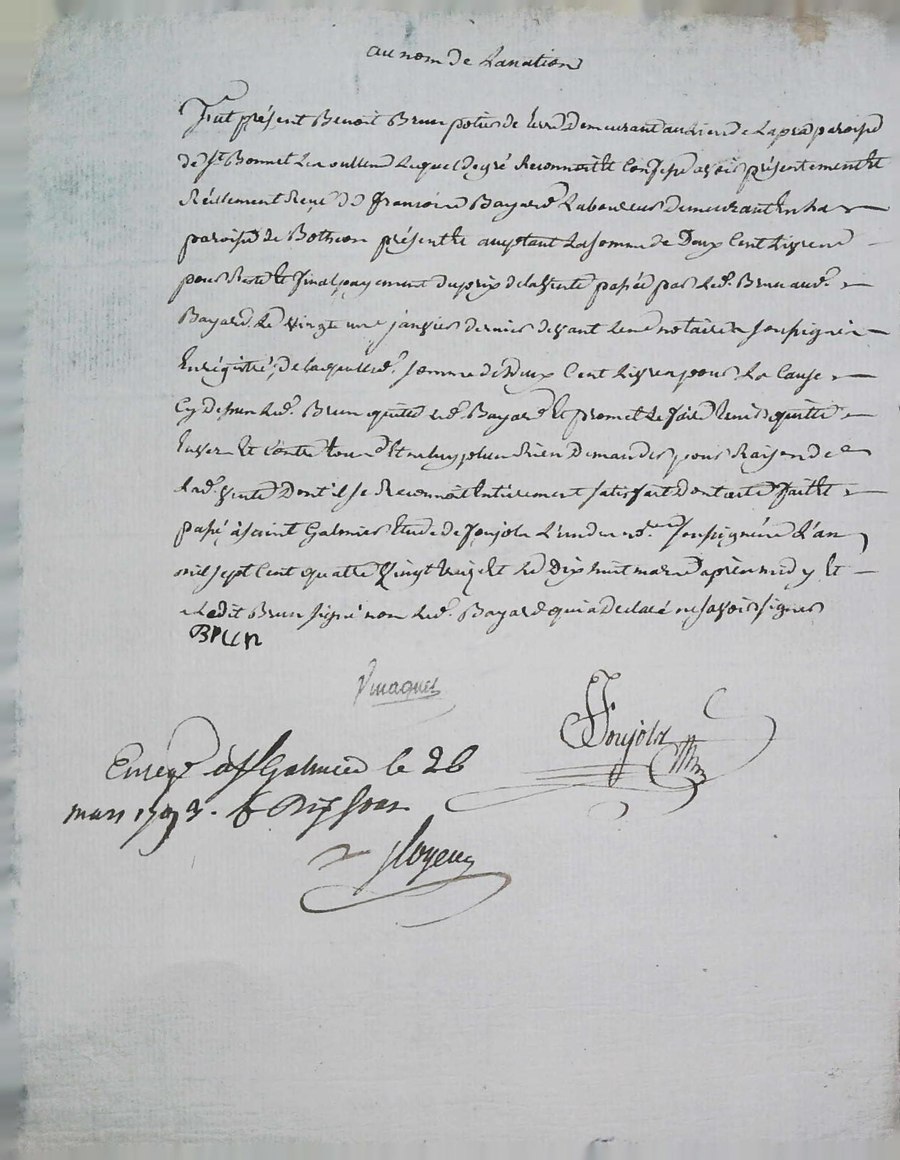 au nom de La nation
Fut présent Benoit Brun potier de terre Demeurant au lieu de Lapra paroisse
de St Bonnet Les oulles Lequel de gré Reconnoit et Confesse avoir présentement et
Réellement Reçu de François Bayard Laboureur Demeurant en la
paroisse de Botheon présent et acceptant La somme de Deux Cent Livres
pour Reste et final payement du prix de la vente passée par Led. Brun aud.
Bayard Le vingt un janvier dernier devant Les notaires soussignés
Enrégistré, de laquelle d. somme de Deux Cent Livres pour La Cause
Cy dessus Led. Brun quitte led. Bayard et promet Le faire tenir quitte
Envers et Contre tous et ne luy plus Rien Demander pour Raison de
lad. vente Dont il se Reconnoit Entierement satisfait Dont acte fait et
passé à saint Galmier Etude de Soujola L'un des nores soussignés L'an
mil sept Cent quatre vingt treize et Le Dix huit mars après midy Et
a Ledit Brun signé non Led. Bayard qui a Declaré ne savoir signer
Brun
Soujola
Enrég. à St Galmier le 26
mars 1793.